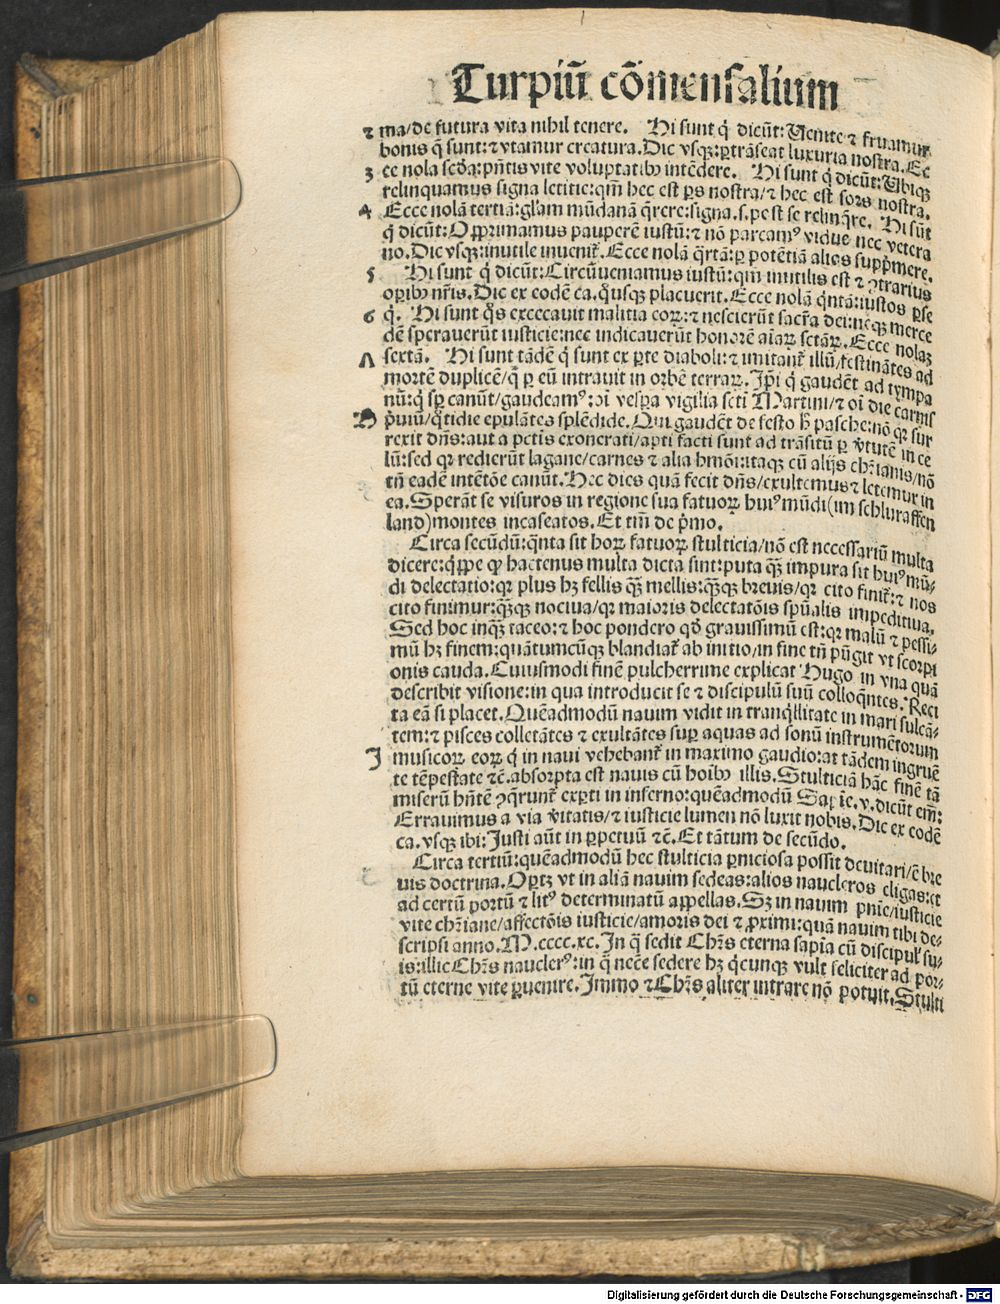 Turpiū cōmensalium
2 ma/de futura vita nihil tenere. Hi sunt q̄ dicūt: Venite ⁊ fruamur
bonis q̄ sunt: ⁊ vtamur creatura. Dic vsq̃: ꝑtrāseat luxuria nostra. Ec
3 ce nola scd̃a: pñtis vite voluptatibꝫ intēdere. Hi sunt q̄ dicūt: Vbiqꝫ
relinquamus signa letitie: qm̄ hec est ps nostra/⁊ hec est sors nostra.
4 Ecce nolā tertiā: gl̃am mūdanā q̄rere: signa .s. post se relinq̄re. Hi sūt
q̄ dicūt: Opprimamus pauperē iustū: ⁊ nō parcamꝰ vidue nec vetera
no. Dic vsqꝫ: inutile inuenit᷑. Ecce nolā q̄rtā: ꝑ potētiā alios suppͥmere.
5 Hi sunt q̄ dicūt: Circūueniamus iustū: qm̄ inutilis est ⁊ ꝯtrarius
opibꝫ nr̃is. Dic ex eodē ca. q̄usqꝫ placuerit. Ecce nolā q̄ntā: iustos ꝑse
6 q̄. Hi sunt q̄s excecauit malitia eoꝝ: ⁊ nescierūt sacr̃a dei: neqꝫ merce
dē sperauerūt iusticie: nec iudicauerūt honorē aīaꝝ sctāꝝ. Ecce nolaꝫ
7 sextā. Hi sunt tādē q̄ sunt ex ꝑte diaboli: ⁊ imitant᷑ illū/festinātes ad
mortē duplicē/q̄ ꝑ eū intrauit in orbē terraꝝ. Ip̄i q̄ gaudēt ad tympa
nū: q̄ sꝑ canūt/gaudeamꝰ: oī vespa vigilia scti Martini/⁊ oī die carnis
H pͥuiū/q̄tidie epulātes splēdide. Qui gaudēt de festo h̄ pasche: nō qꝛ sur
rexit dñs: aut a pctis exonerati/apti facti sunt ad trāsitū ꝑ v̄tutē in ce
lū: sed qꝛ redierūt lagane/carnes ⁊ alia hmōi: itaqꝫ cū alijs chr̃ianis/nō
tñ eadē intētōe canūt. Hec dies quā fecit dñs/exultemus ⁊ letemur in
ea. Sperāt se visuros in regione sua fatuoꝝ huiꝰ mūdi (im schluraffen
land) montes incaseatos. Et tm̄ de pͥmo.
Circa secūdū: q̄nta sit hoꝝ fatuoꝝ stulticia/nō est necessariū multa
dicere: q̄ppe qꝫ hactenus multa dicta sint: puta q̄ꝫ impura sit huiꝰ mū-
di delectatio: qꝛ plus hꝫ fellis q̄ꝫ mellis: q̄ꝫqꝫ breuis/qꝛ cito finit᷑: ⁊ nos
cito finimur: q̄ꝫqꝫ nociua/qꝛ maioris delectatōis spūalis impeditiua.
Sed hoc inq̄ꝫ taceo: ⁊ hoc pondero qd̄ grauissimū est: qꝛ malū ⁊ pessi-
mū hꝫ finem: quātumcūqꝫ blandiat᷑ ab initio/in fine tñ pūgit vt scorpi
onis cauda. Cuiusmodi finē pulcherrime explicat Hugo in vna quā
describit visione: in qua introducit se ⁊ discipulū suū colloq̄ntes. Reci
ta eā si placet. Quēadmodū nauim vidit in tranq̄llitate in mari sulcā-
tem: ⁊ pisces colletātes ⁊ exultātes suꝑ aquas ad sonū instrumētorum
J musicoꝝ eoꝝ q̄ in naui vehebant᷑ in maximo gaudio: at tādem ingruē
te tēpestate ⁊c̄. absorpta est nauis cū hoībꝫ illis. Stulticiā hāc finē tā
miserū hñtē ꝯq̄runt᷑ exꝑti in inferno: quēadmodū Sapiē. v. dicūt em̄:
Errauimus a via v̄itatis/⁊ iusticie lumen nō luxit nobis. Dic ex codē
ca. vsqꝫ ibi: Justi aūt in ꝑpetuū ⁊c̄. Et tātum de secūdo.
Circa tertiū: quēadmodū hec stulticia ꝑniciosa possit deuitari/ē bre
uis doctrina. Oportꝫ vt in aliā nauim sedeas: alios naucleros eligas: et
ad certū portū ⁊ litꝰ determinatū appellas. Sꝫ in nauim pn̄ie/iusticie
vite chr̃iane/affectōis iusticie/amoris dei ⁊ ꝓximi: quā nauim tibi de-
scripsi anno. M.cccc.xc. In q̄ sedit Chr̃s eterna sapīa cū discipul̕ su-
is: illic Chr̃s nauclerꝰ: in q̄ necē sedere hꝫ q̄cunqꝫ vult feliciter ad por-
tū eterne vite ꝑuenire. Immo ⁊ Chr̃s aliter intrare nō potuit. Stulti
Digitalisierung gefördert durch die Deutsche Forschungsgemeinschaft - DFG